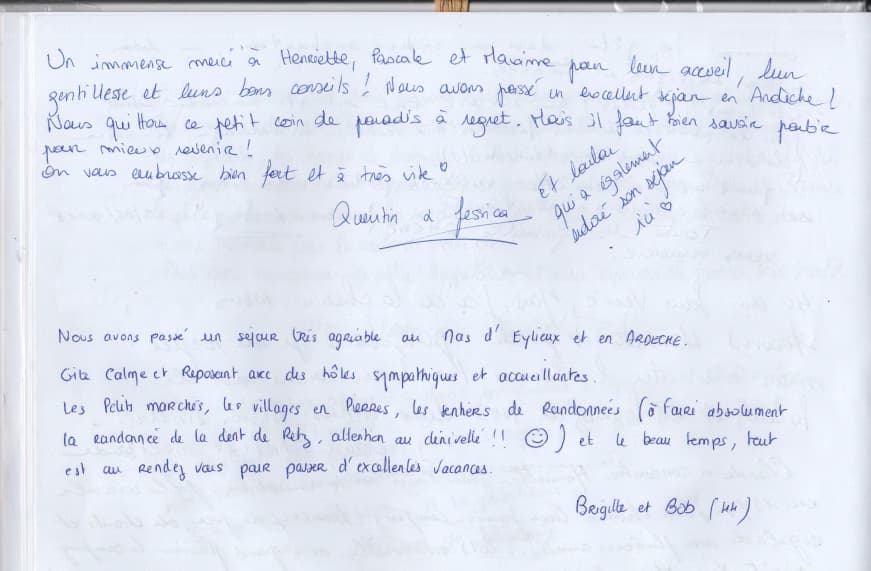 Un immense merci à Henriette, Pascale et Maxime pour leur accueil, leur
gentillesse et leurs bons conseils ! Nous avons passé un excellent séjour en Ardèche !
Nous quittons ce petit coin de paradis à regret. Mais il faut bien savoir partir
pour mieux revenir !
On vous embrasse bien fort et à très vite ♡
Quentin & Jessica
Et Loulou
qui a également
adoré son séjour
ici ♡
Nous avons passé un sejour très agréable au Mas d'Eylieux et en ARDECHE.
Gite Calme et Reposant avec des hôtes sympathiques et accueillantes.
Les Petits marchés, les villages en Pierres, les sentiers de Randonnées (à faire absolument
la randonnée de la dent de Retz, attention au dénivellé !! ☺) et le beau temps, tout
est au rendez vous pour passer d'excellentes vacances.
Brigitte et Bob (44)